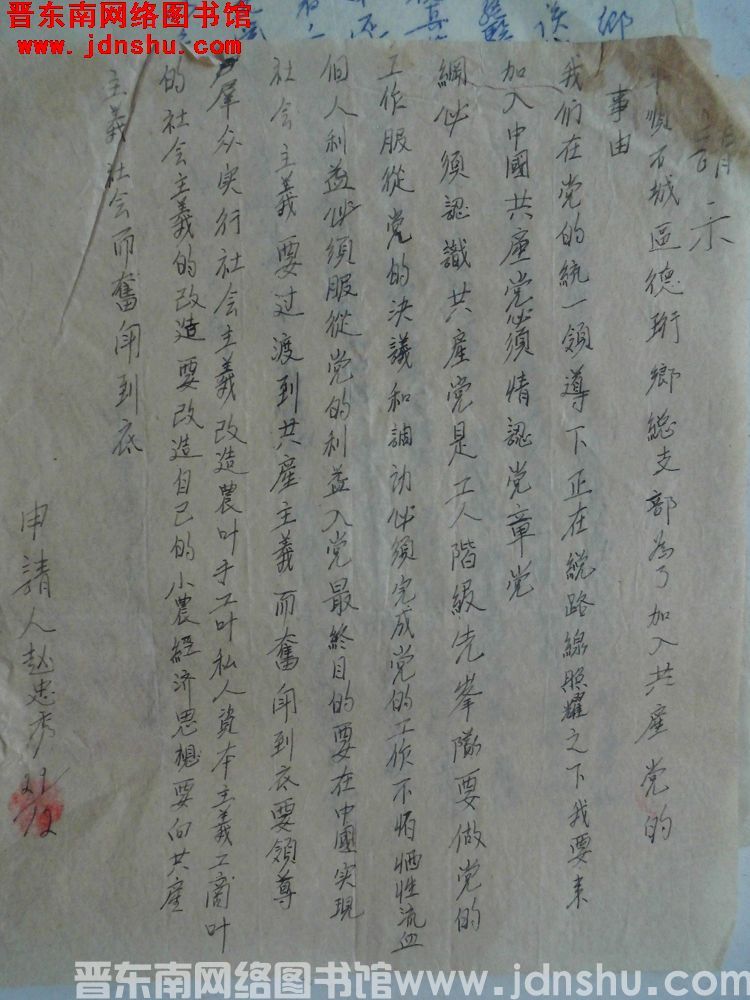 晋东南网络图书馆
www.jdnshu.com
平顺石城区德珩鄉総支部為了加入共産党的
事由
我们在党的統一領導下正在総路線照耀之下我要来
加入中國共産党必須情認党章党
綱必須認識共産党是工人階級先峯隊要做党的
工作服從党的決議和調动必須完成党的工作不怕牺牲流血
個人利益必須服從党的利益入党最終目的要在中國实現
社会主義要过渡到共産主義而奮鬥到底要領導
羣众实行社会主義改造農叶手工叶私人資本主義工商叶
的社会主義的改造要改造自己的小農經济思想要向共産
主義社会而奮鬥到底
申請人赵忠秀
29/12
晋东南网络图书馆www.jdnshu.com